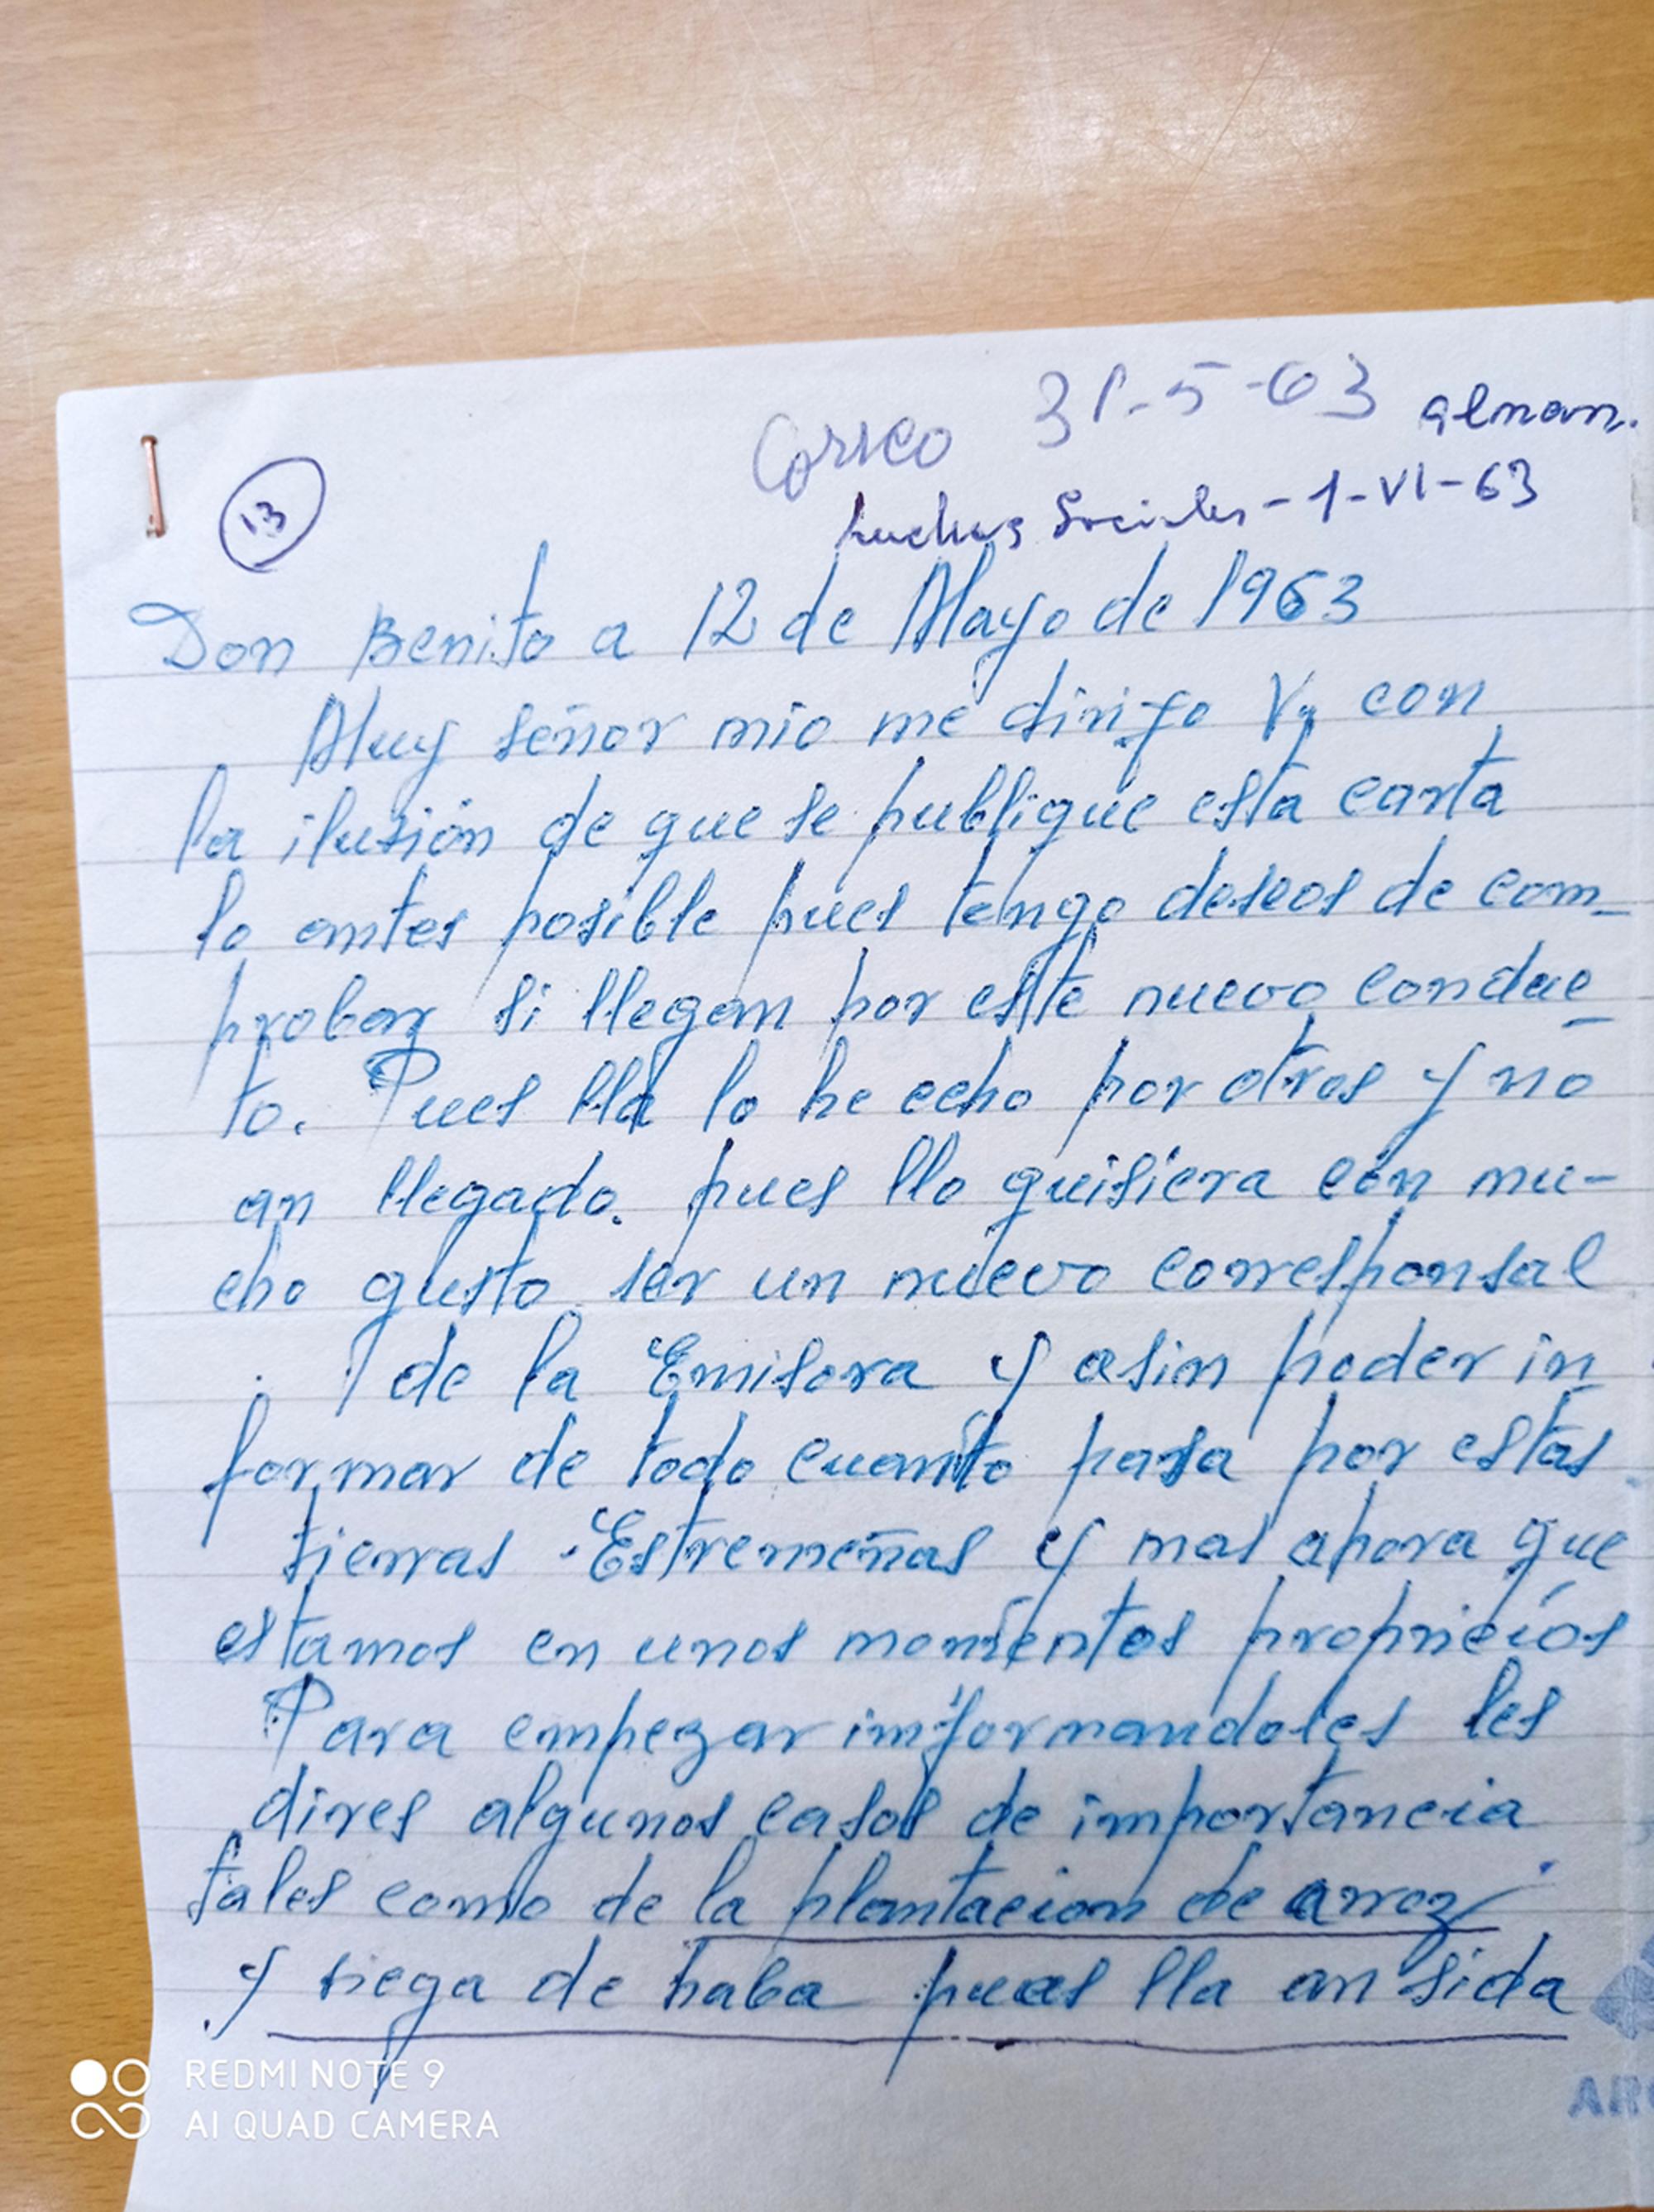 Correo 31-5-63 alman.
13
Luchas Sociales - 1-VI-63
Don Benito a 12 de Mayo de 1963
Muy señor mio me dirijo V. con
la ilusión de que se publique esta carta
lo antes posible pues tengo deseos de com_
probar si llegan por este nuevo conduc_
to. Pues lla lo he echo por otros y no
an llegado. pues llo quisiera con mu-
cho gusto ser un nuevo corresponsal
de la Emisora y asin poder in_
formar de todo cuanto pasa por estas
tierras Estremeñas y mas ahora que
estamos en unos momentos
Para empezar imformandoles les
dires algunos casos de importancia
tales como de la plantacion de arroz
y siega de haba pues lla an sida
REDMI NOTE 9
AI QUAD CAMERA